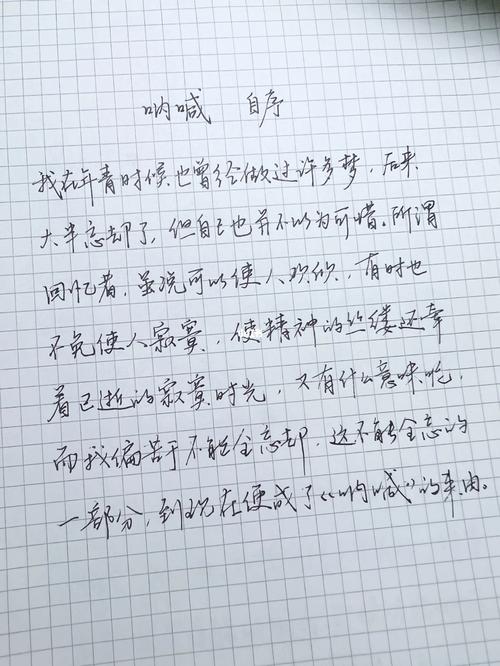 呐喊 自序
我在年青时候也曾经做过许多梦，后来
大半忘却了，但自己也并不以为可惜。所谓
回忆者，虽说可以使人欢欣，有时也
不免使人寂寞，使精神的丝缕还牵
着已逝的寂寞时光，又有什么意味呢，
而我偏苦于不能全忘却，这不能全忘的
一部分，到现在便成了《呐喊》的来由。